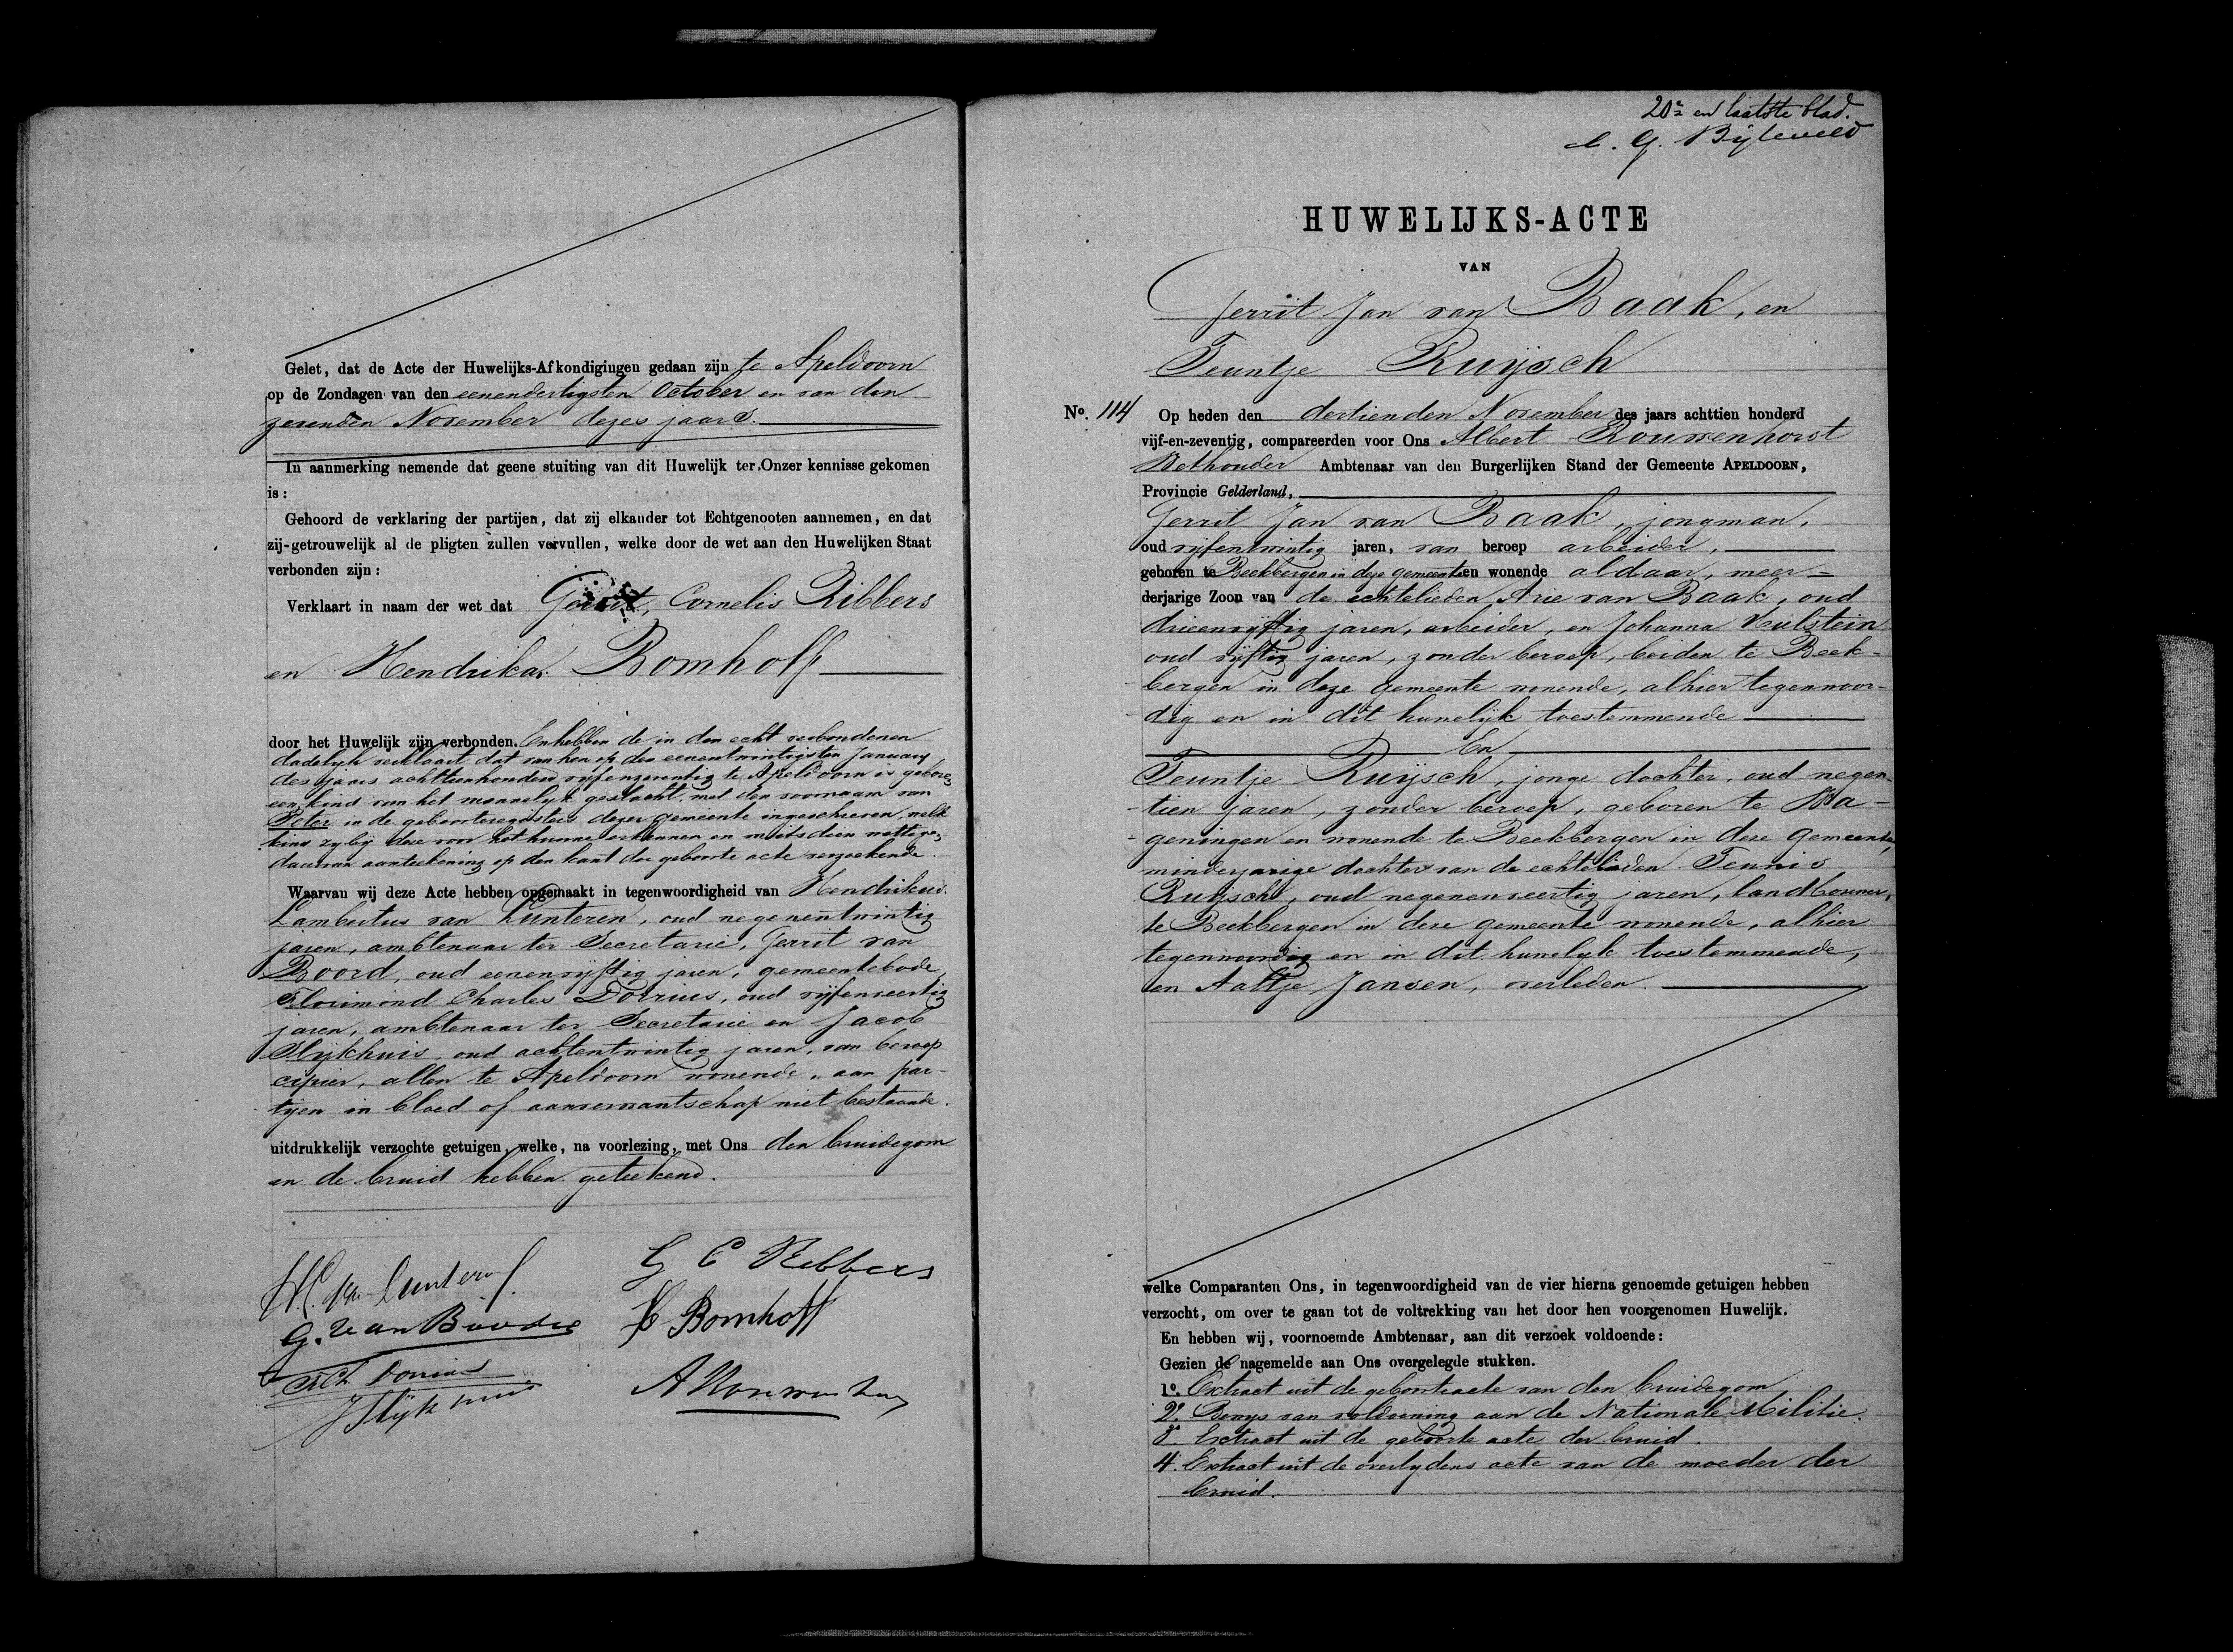 Gelet, dat de Acte der Huwelijks-Afkondigingen gedaan zijn te Apeldoorn
op de Zondagen van den eenendertigsten October en van den
zevenden November dezes jaars.
In aanmerking nemende dat geene stuiting van dit Huwelijk ter Onzer kennisse gekomen
is:
Gehoord de verklaring der partijen, dat zij elkander tot Echtgenooten aannemen, en dat
zij getrouwelijk al de pligten zullen vervullen, welke door de wet aan den Huwelijken Staat
verbonden zijn:
Verklaart in naam der wet dat Gerrit, Cornelis Ribbers
en Hendrika Bomhoff
door het Huwelijk zijn verbonden. En hebben de in den echt verbondenen
dadelijk verklaart dat van hen op den eenentwintigsten January
des jaars achttienhonderd vijfenzeventig te Apeldoorn is geboren
een kind van het mannelijk geslacht, met den voornaam van
Peter in de geboorteregisters dezer gemeente ingeschreven, welk
kind zij bij deze voor het hunne erkennen en mitsdien wettigen,
daarvan aanteekening op den kant der geboorte acte verzoekende.
Waarvan wij deze Acte hebben opgemaakt in tegenwoordigheid van Hendrikus
Lambertus van Lunteren, oud negenentwintig
jaren, ambtenaar ter Secretarie, Gerrit van
Boord, oud eenenvijftig jaren, gemeentebode,
Florimond Charles Dorrius, oud vijfenveertig
jaren, ambtenaar ter Secretarie en Jacob
Slijkhuis, oud achtentwintig jaren, van beroep
cipier, allen te Apeldoorn wonende, aan par-
tijen in bloed of aanverwantschap niet bestaande.
uitdrukkelijk verzochte getuigen, welke, na voorlezing, met Ons den bruidegom
en de bruid hebben geteekend.
H. van Lunteren
G C Ribbers
G. van Boord
H Bomhoff
F Ch Dorrius
J Slijkhuis
20e en laatste blad.
C. G. Bijleveld
HUWELIJKS-ACTE
VAN
Gerrit Jan van Baak, en
Teuntje Ruijsch
No. 114 Op heden den dertienden November des jaars achttien honderd
vijf-en-zeventig, compareerden voor Ons Albert Rouwenhorst
Wethouder Ambtenaar van den Burgerlijken Stand der Gemeente APELDOORN,
Provincie Gelderland,
Gerrit Jan van Baak, jongman,
oud vijfentwintig jaren, van beroep arbeider,
geboren te Beekbergen in deze gemeente en wonende aldaar, meer-
derjarige Zoon van de echtelieden Arie van Baak, oud
drieenvijftig jaren, arbeider, en Johanna Hulstein
oud vijftig jaren, zonder beroep, beiden te Beek-
bergen in deze gemeente wonende, alhier tegenwoor-
dig en in dit huwelijk toestemmende
En
Teuntje Ruijsch, jonge dochter, oud negen-
tien jaren, zonder beroep, geboren te Wa-
geningen en wonende te Beekbergen in deze gemeente,
minderjarige dochter van de echtelieden Teunis
Ruijsch, oud negenenveertig jaren, landbouwer,
te Beekbergen in deze gemeente wonende, alhier
tegenwoordig en in dit huwelijk toestemmende,
en Aaltje Jansen, overleden.
welke Comparanten Ons, in tegenwoordigheid van de vier hierna genoemde getuigen hebben
verzocht, om over te gaan tot de voltrekking van het door hen voorgenomen Huwelijk.
En hebben wij, voornoemde Ambtenaar, aan dit verzoek voldoende:
Gezien de nagemelde aan Ons overgelegde stukken.
1o. Extract uit de geboorteacte van den bruidegom,
2o. Bewys van voldoening aan de Nationale Militie.
3. Extract uit de geboorte acte der bruid.
4. Extract uit de overlydens acte van de moeder der
bruid.